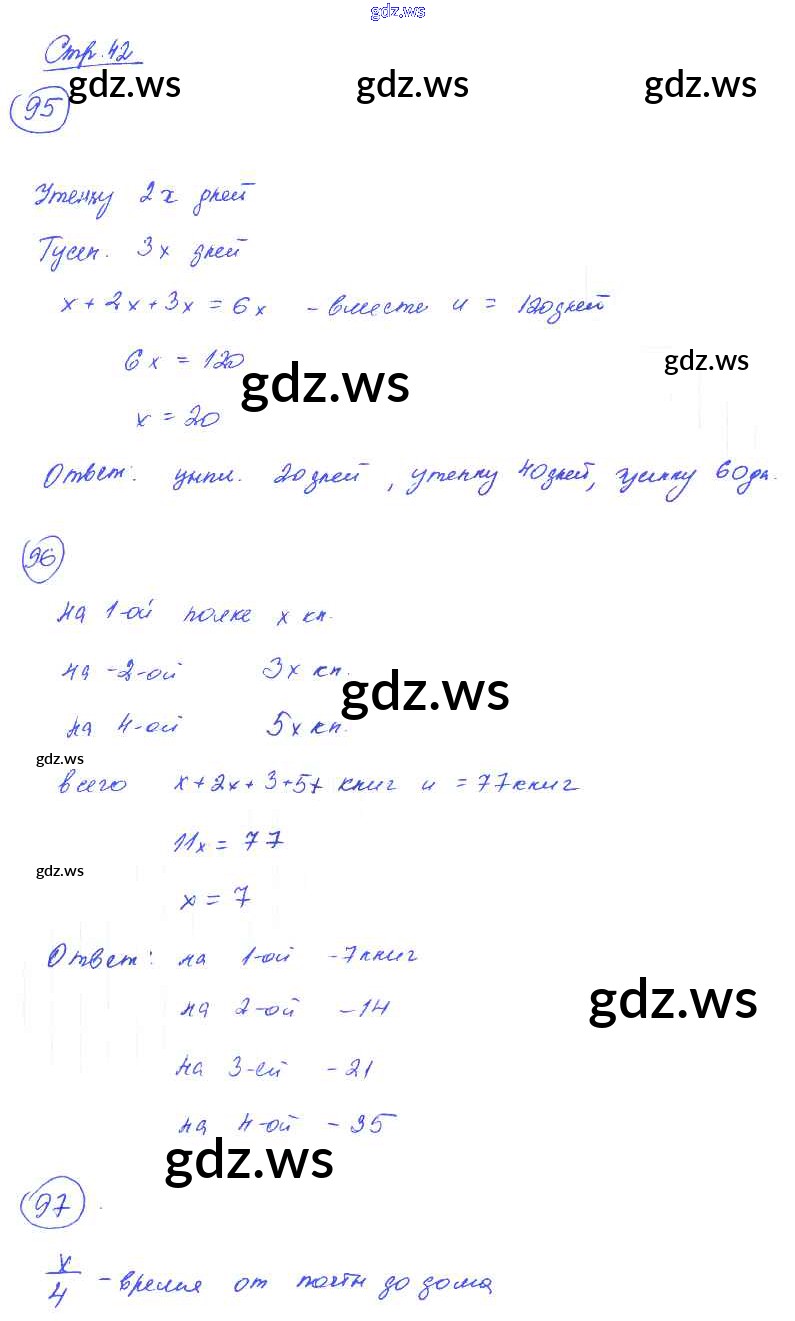 gdz.ws
Стр. 42
gdz.ws gdz.ws gdz.ws
95
Утенку 2x дней
Гусен. 3x дней
x + 2x + 3x = 6x - вместе и = 120 дней
6x = 120
gdz.ws
gdz.ws
x = 20
Ответ: цыпл. 20 дней, утенку 40 дней, гусенку 60 дн.
96
на 1-ой полке x кн.
на -2-ой 3x кн.
gdz.ws
на 4-ой 5x кн.
gdz.ws
всего x + 2x + 3 + 5+ книг и = 77 книг
11x = 77
gdz.ws
x = 7
Ответ: на 1-ой - 7 книг
gdz.ws
на 2-ой - 14
на 3-ей - 21
на 4-ой - 35
gdz.ws
97
x/4 - время от почты до дома